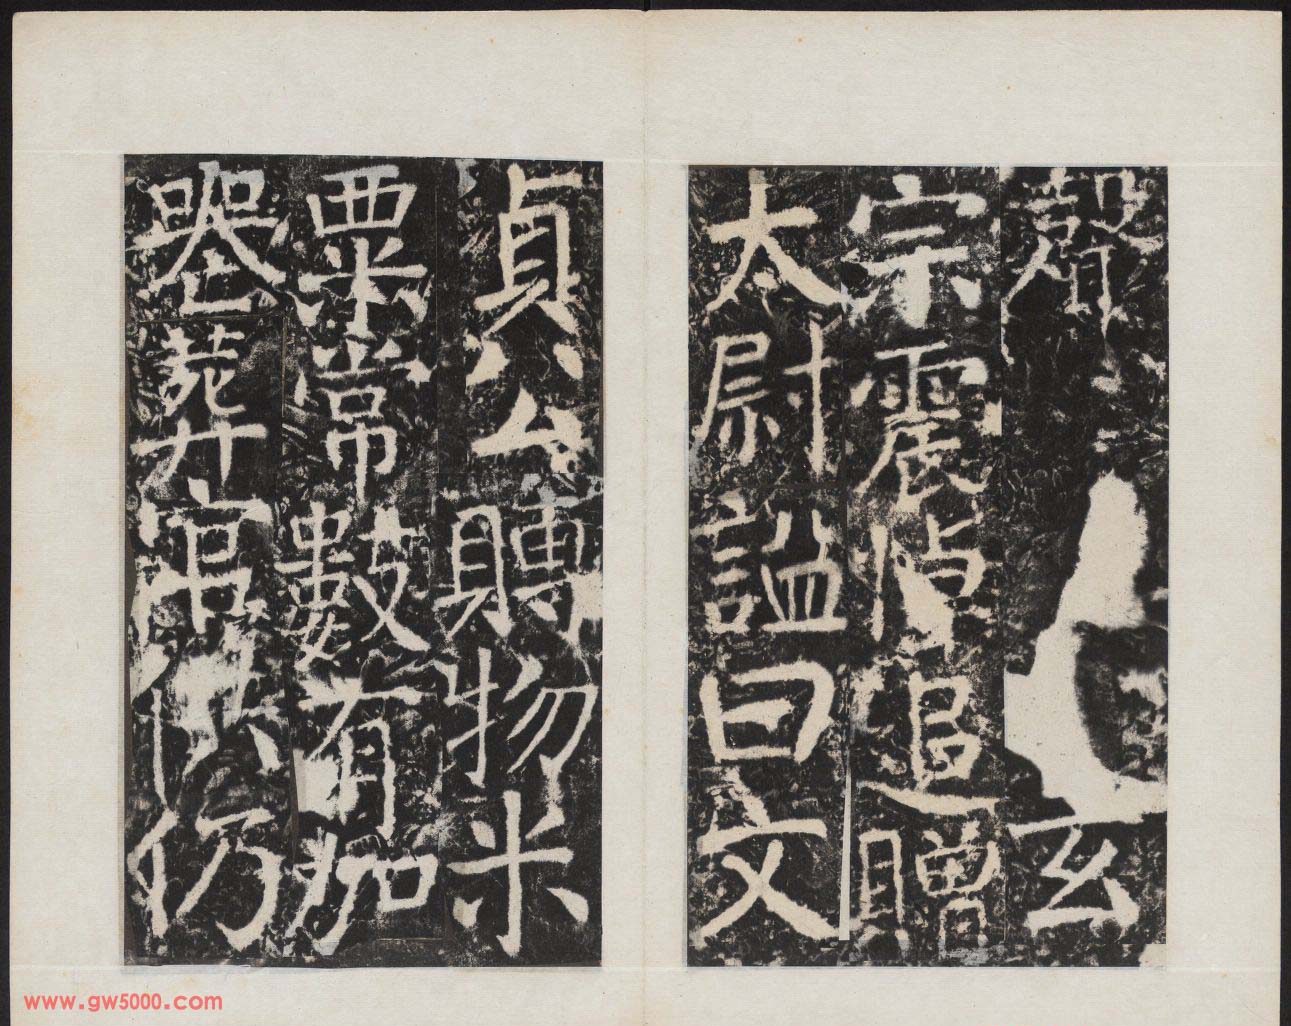 玄
宗震悼追贈
太尉謚曰文
貞公賻物米
粟常數有加
喪葬官供仍
www.gw5000.com